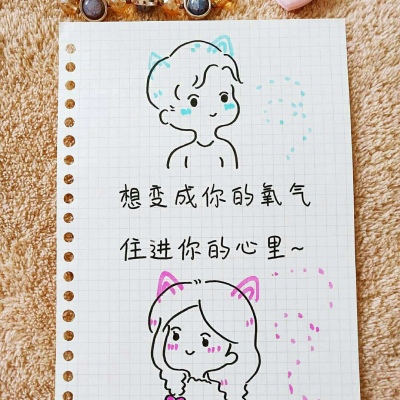 想变成你的氧气
住进你的心里~